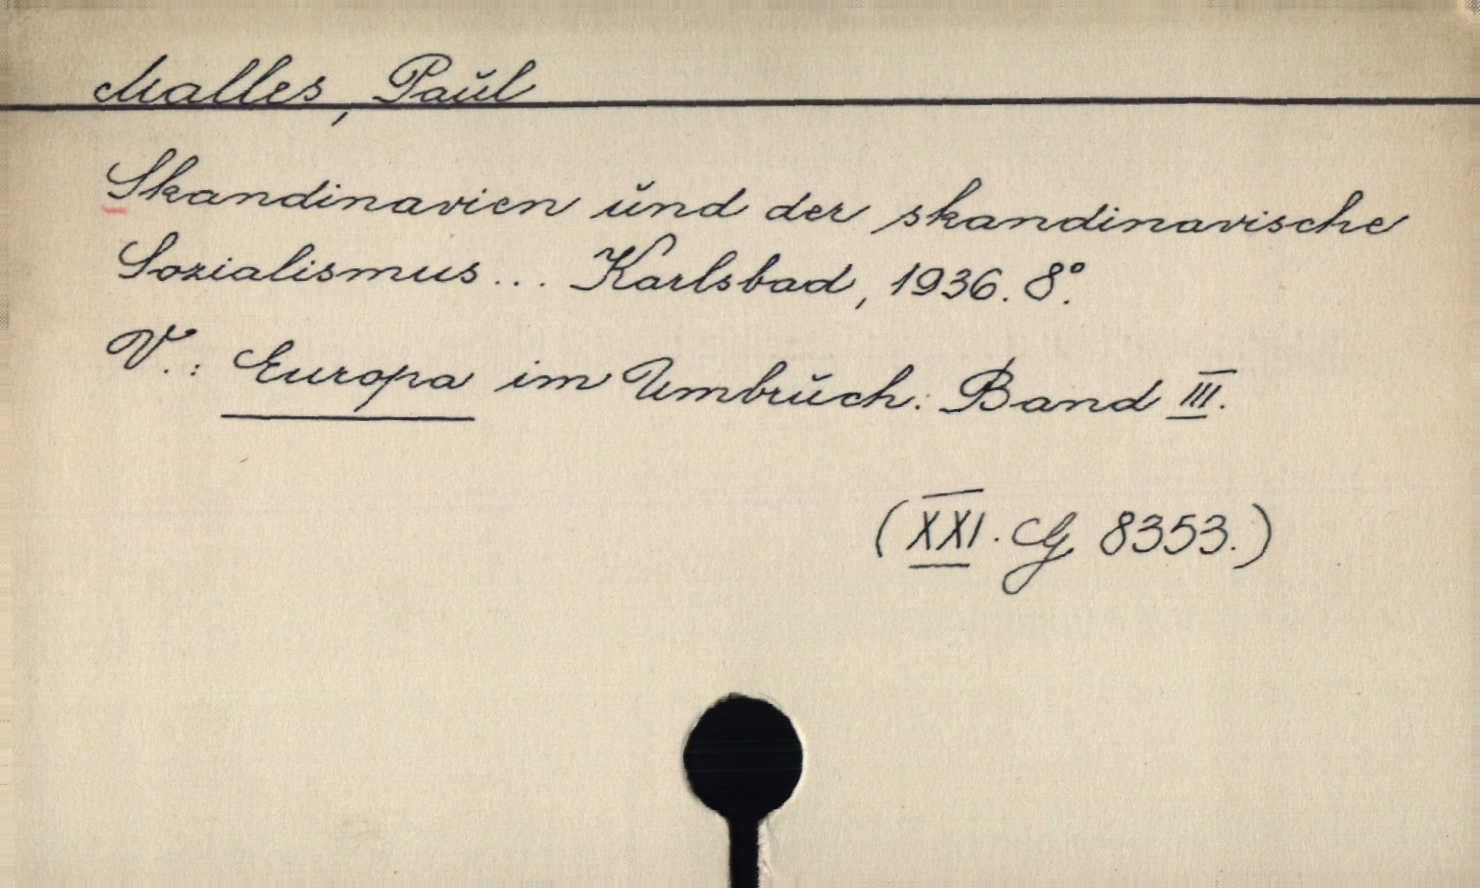 Malles, Paŭl
Skandinavien ŭnd der skandinavische
Sozialismus... Karlsbad, 1936. 8°.
V.: Europa im Umbrŭch. Band III.
(XXI. G 8353.)